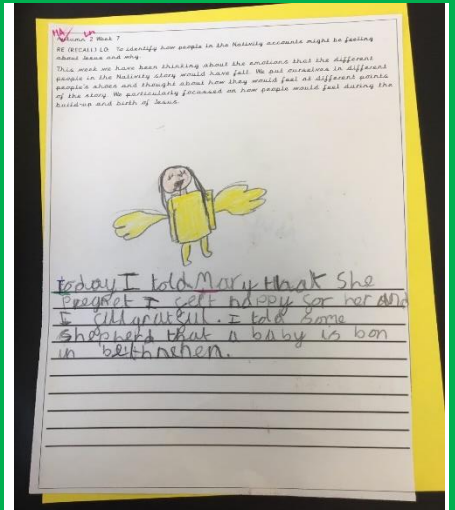 Autumn 2 Week 7
RE (RECALL) LO: To identify how people in the Nativity accounts might be feeling
about Jesus and why.
This week we have been thinking about the emotions that the different
people in the Nativity story would have felt. We put ourselves in different
people's shoes and thought about how they would feel at different points
of the story. We particularly focussed on how people would feel during the
build-up and birth of Jesus.
today I told Mary that She
Pregnet I felt happy for her and
I grateful. I told some
Shepherd that a baby is bon
in